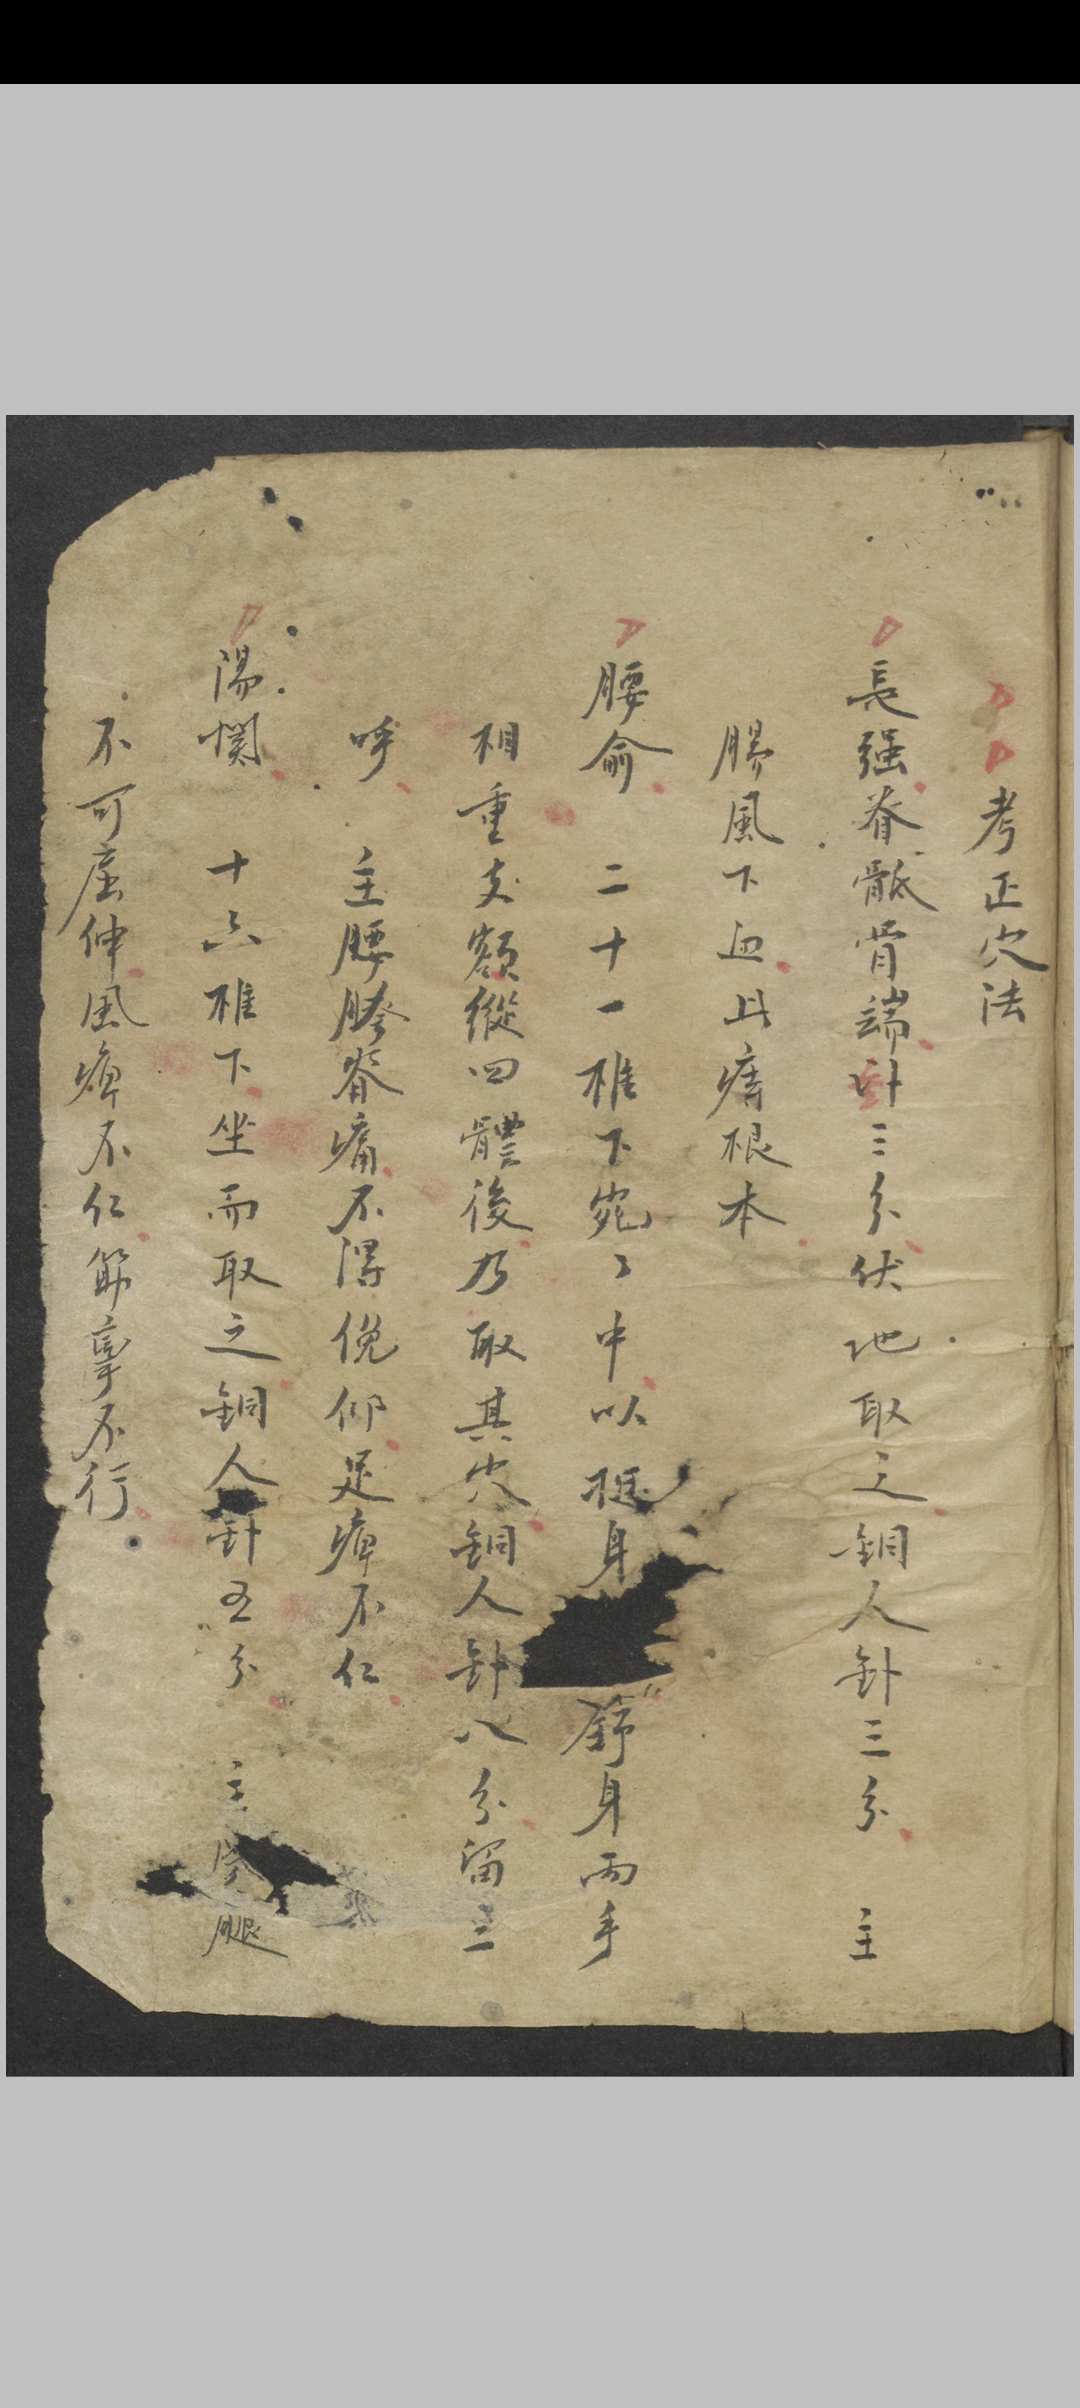 考正穴法
長强脊骶骨端卧三分伏地取之銅人針三分 主
腸風下血此痔根本
腰俞 二十一椎下宛〻中以挺身 舒身兩手
相重支額縱四體後乃取其穴銅人針八分留三
呼 主腰胯脊痛不得俛仰足痺不仁
陽関 十六椎下坐而取之銅人針五分 主 腿
不可屈伸風痺不仁筋攣不行